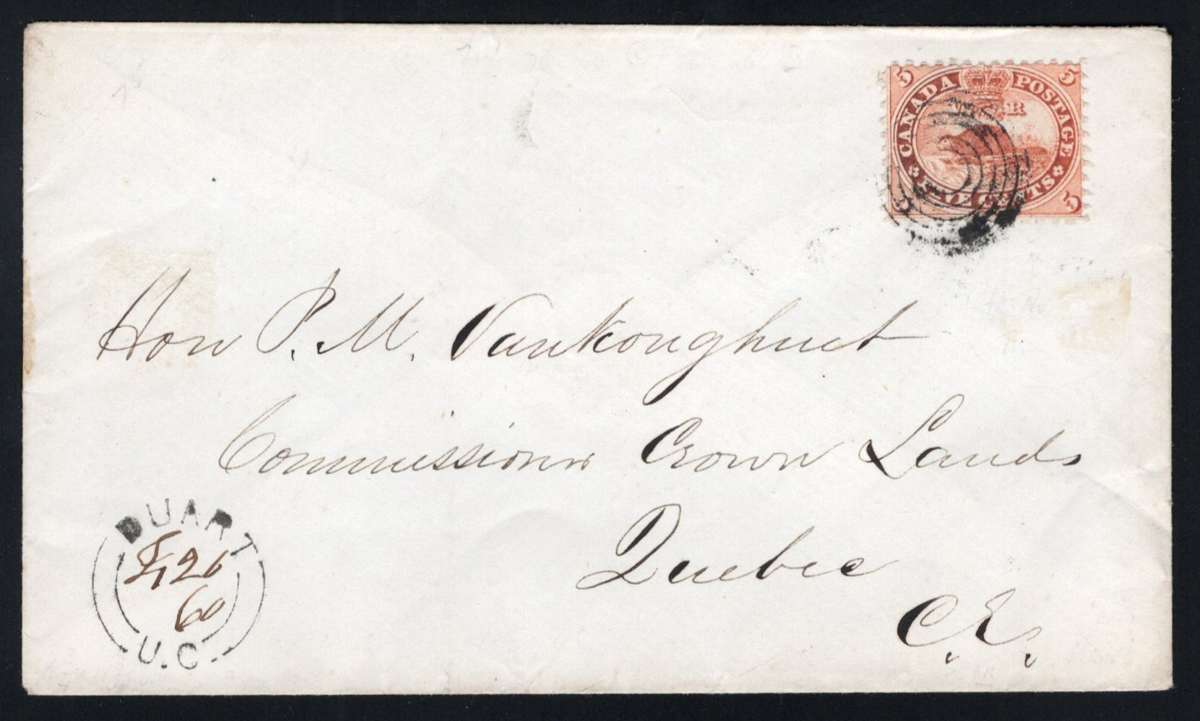 5 CANADA POSTAGE 5
V R
FIVE CENTS 5
Hon P. M. Vankoughnet
Commissioner Crown Lands
Quebec
C.E.
DUART
F, 26
60
U.C.